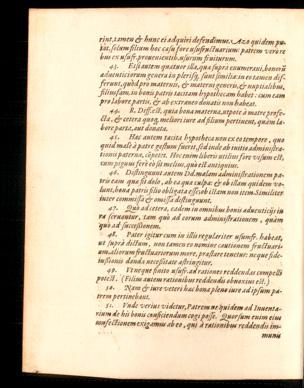 rint, tamen & hunc ei adquiri defendimus. Azo quidem pu-
tat, solum filium hoc casu fore usufructuarium: patrem vero re
bus ex ususfr. provenientib. usurum fruiturum.
43. Etsi autem quatuor illa, quæ suprà enumeravi, bonorũ
aduenticiorum genera in pleris͡q; sunt similia: in eo tamen dif-
ferunt, quòd pro maternis, & materni generis, & nuptialibus,
filiusfam. in bonis patris tacitam hypothecam habet: cum eam
pro labore partis, & ab extraneo donatis non habeat.
44. R. Diff. est, quia bona materna, utpote à matre profe-
cta, & cetera quoq; meliori iure ad filium pertinent, quàm la-
bore parta, aut donata.
45. Hæc autem tacita hypotheca non ex eo tempore, quo
quid malè à patre gestum fuerit, sed inde ab initio administra-
tionis paterna, cœpit. Hoc enim liberis utilius fore visum est:
nam pignus ferè eò sit melius, quò est antiquius.
46. Distinguunt autem Dd. malam administrationem pa-
tris eam quæ fit dolo, ab ea quæ culpa: & ob illam quidem vo-
lunt, bona patris filio obligata esse, ob illam non item. Similiter
inter commissa & omissa distinguunt.
47. Quò ad cetera, eadem in omnibus bonis aduenticijs iu
ra seruantur, tam quò ad eorum administrationem, quàm
quò ad successionem.
48. Pater igitur cum in illis regulariter usumfr. habeat,
ut suprà dictum, non tamen eo nomine cautionem fructuari-
am, aliorum fructuariorum more, præstare tenetur: neque fide-
iussionis danda necessitate astringitur.
49. Ut neque finito usufr. ad rationes reddendas compelli
potest. (Filius autem rationibus reddendis obnoxius est.)
50. Nam & iure veteri hæc bona pleno iure ad ipsum pa-
trem pertinebant.
51. Vnde verius videtur, Patrem ne quidem ad Inuenta-
rium de his bonis conficiendum cogi posse. Quorsum enim eius
confectionem exigamus ab eo, qui à rationibus reddendis im-
munis